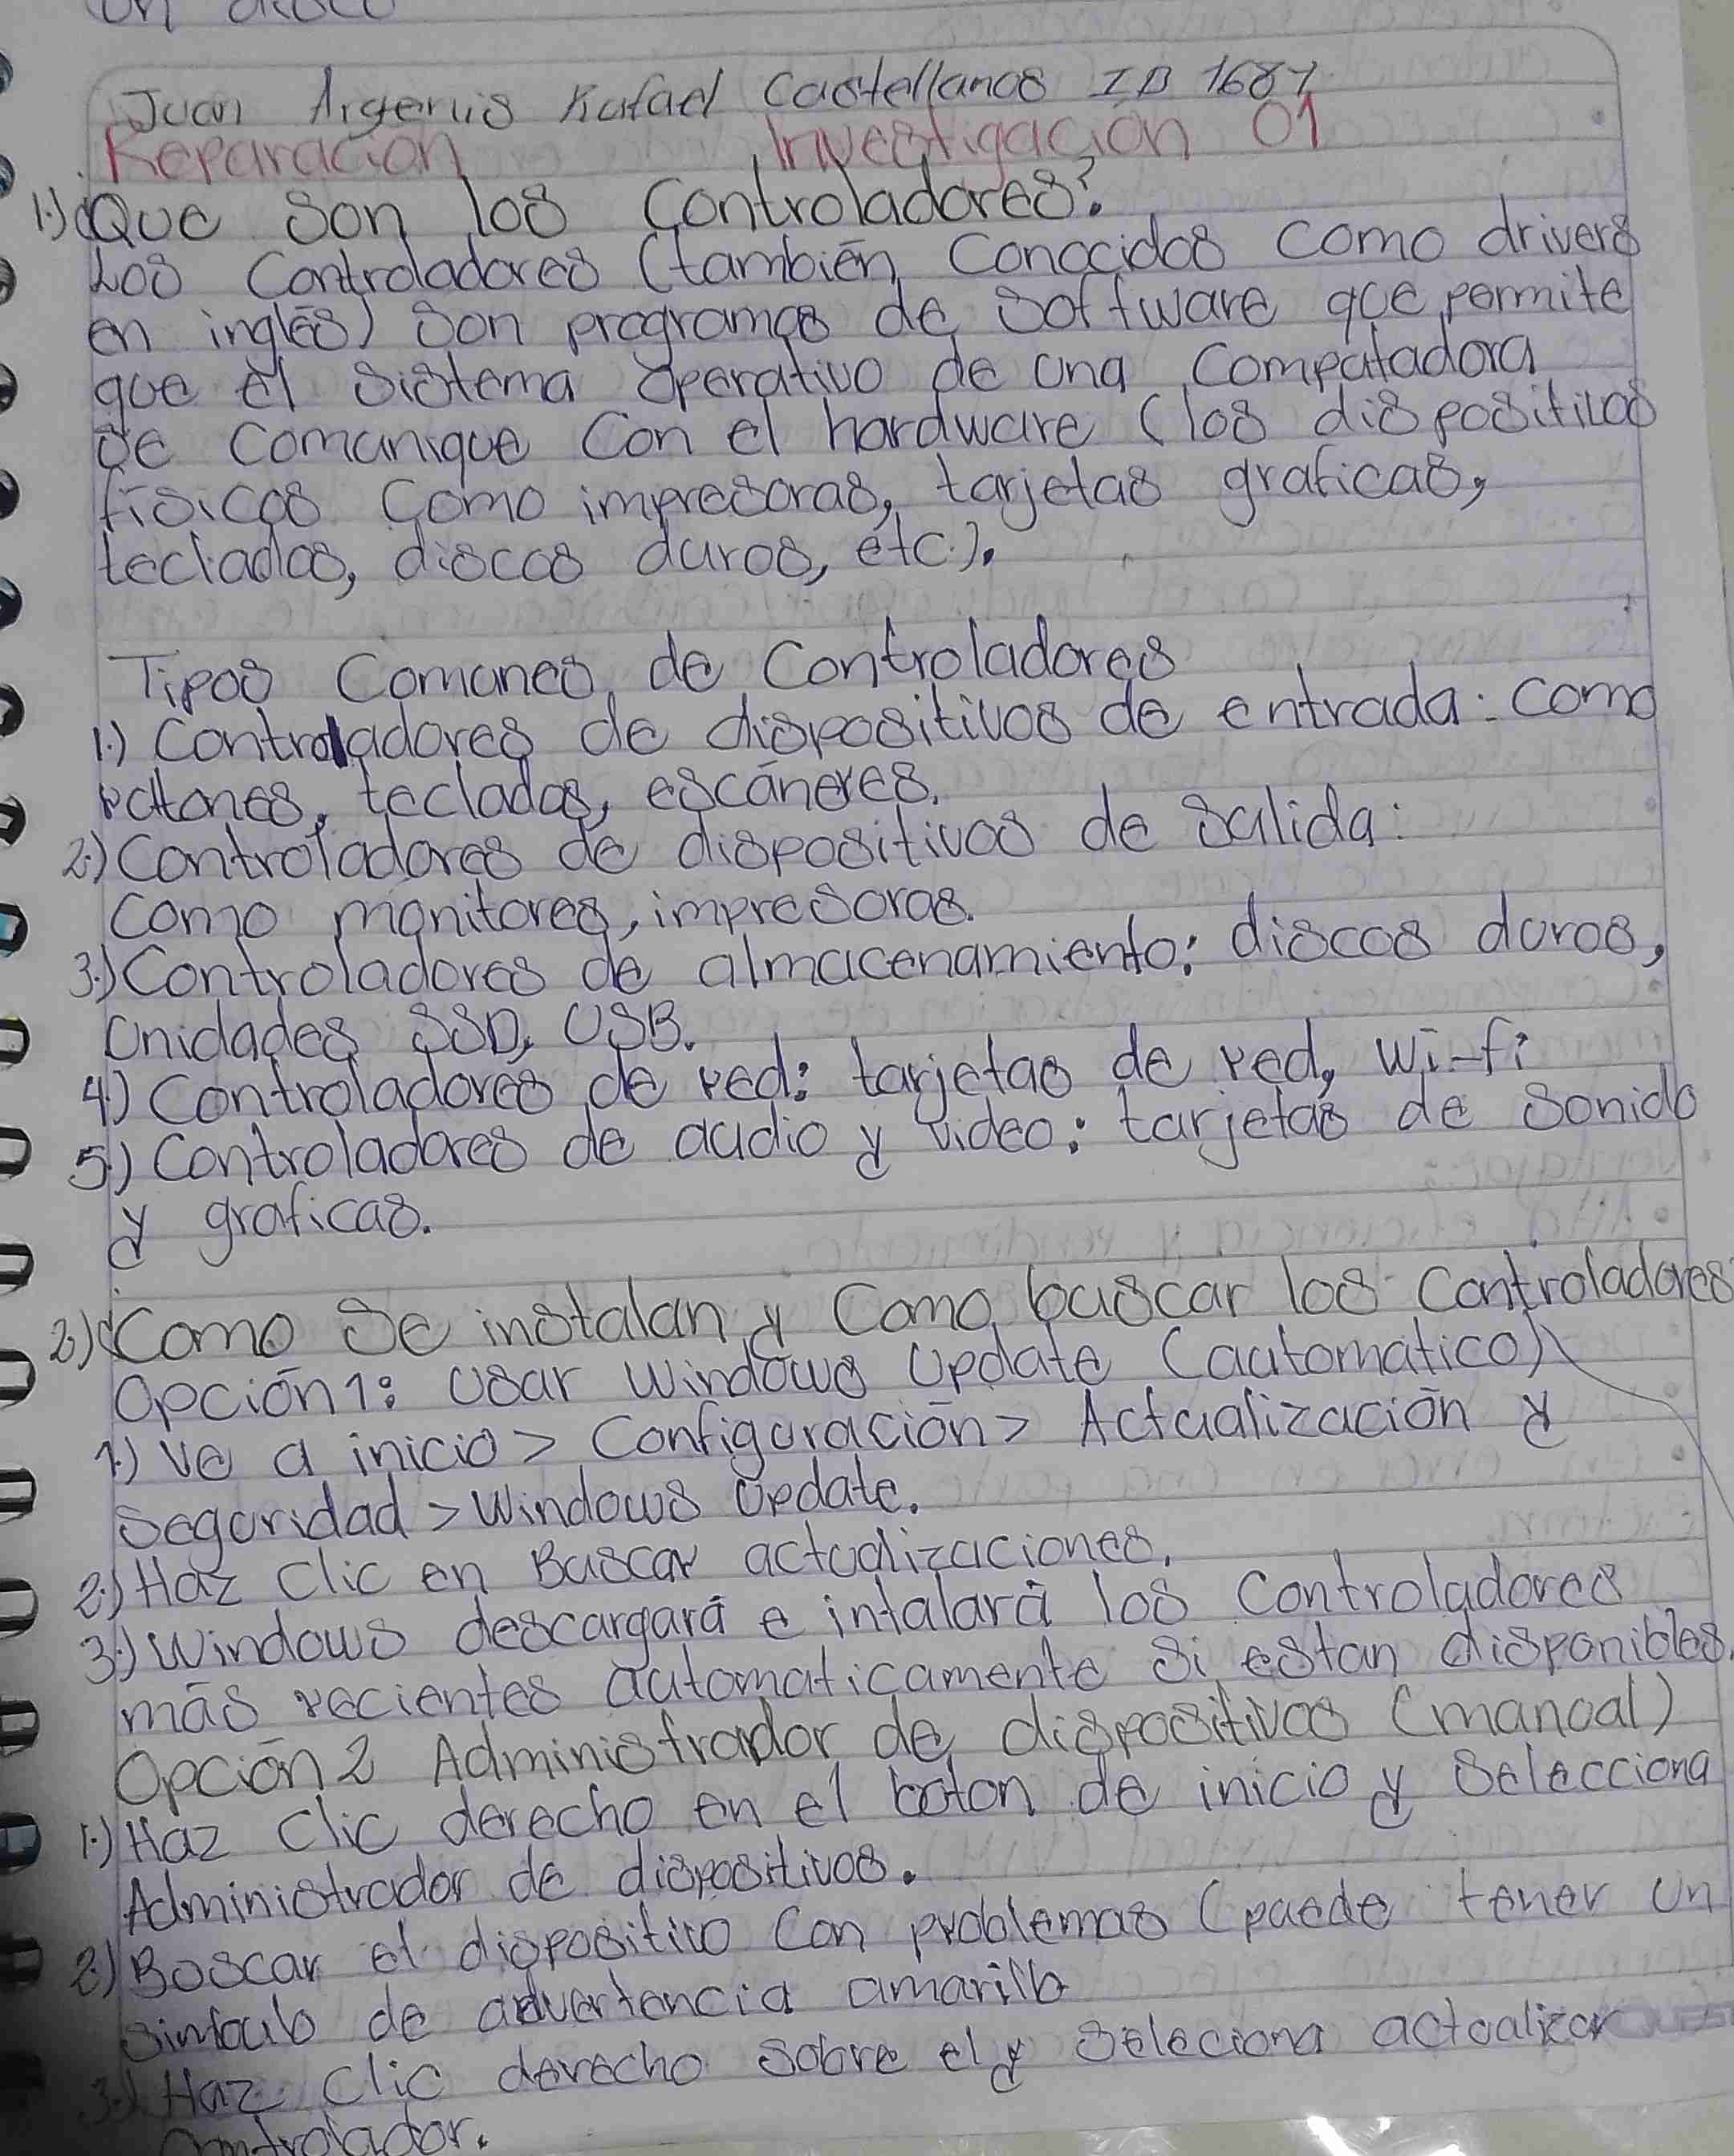 un disco
Juan Argenis Rafael Castellanos ID 1687
Reparación Investigación 01
1.) ¿Que son los Controladores?
Los Controladores (también Conocidos como drivers
en inglés) son programas de software que permite
que el sistema operativo de una Computadora
se comunique con el hardware (los dispositivos
físicos como impresoras, tarjetas graficas,
teclados, discos duros, etc.).
Tipos Comunes de Controladores
1.) Controladores de dispositivos de entrada: como
ratones, teclados, escáneres.
2.) Controladores de dispositivos de salida:
Como monitores, impresoras.
3.) Controladores de almacenamiento: discos duros,
Unidades SSD, USB.
4.) Controladores de red: tarjetas de red, wi-fi
5.) Controladores de audio y video: tarjetas de sonido
y graficas.
2.) ¿Como se instalan y Como buscar los Controladores
Opción 1: Usar Windows Update (automático)
1.) Ve a inicio > Configuración > Actualización y
Seguridad > Windows Update.
2.) Haz clic en Buscar actualizaciones.
3.) Windows descargará e intalará los Controladores
más recientes automaticamente si estan disponibles.
Opción 2 Administrador de dispositivos (manual)
1.) Haz clic derecho en el boton de inicio y selecciona
Administrador de dispositivos.
2.) Buscar el dispositivo con problemas (puede tener un
simbulo de advertencia amarillo
3.) Haz clic derecho sobre el y seleciona actualizar
Controlador.